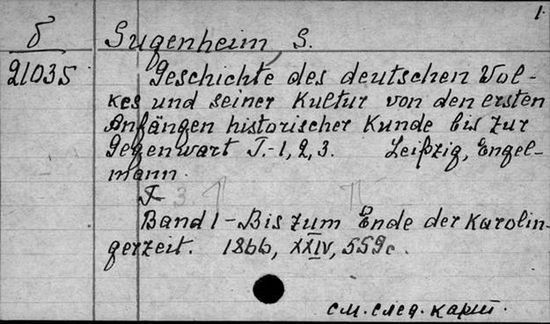 1.
б
21035
Sugenheim, S.
Geschichte des deutschen Vol-
kes und seiner Kultur von den ersten
Anfängen historischer Kunde bis zur
Gegenwart T.-1, 2, 3. Leipzig, Engel-
mann.
Band 1 - Bis zum Ende der Karolin-
gerzeit. 1866, XXIV, 559 c.
см. след. карт.